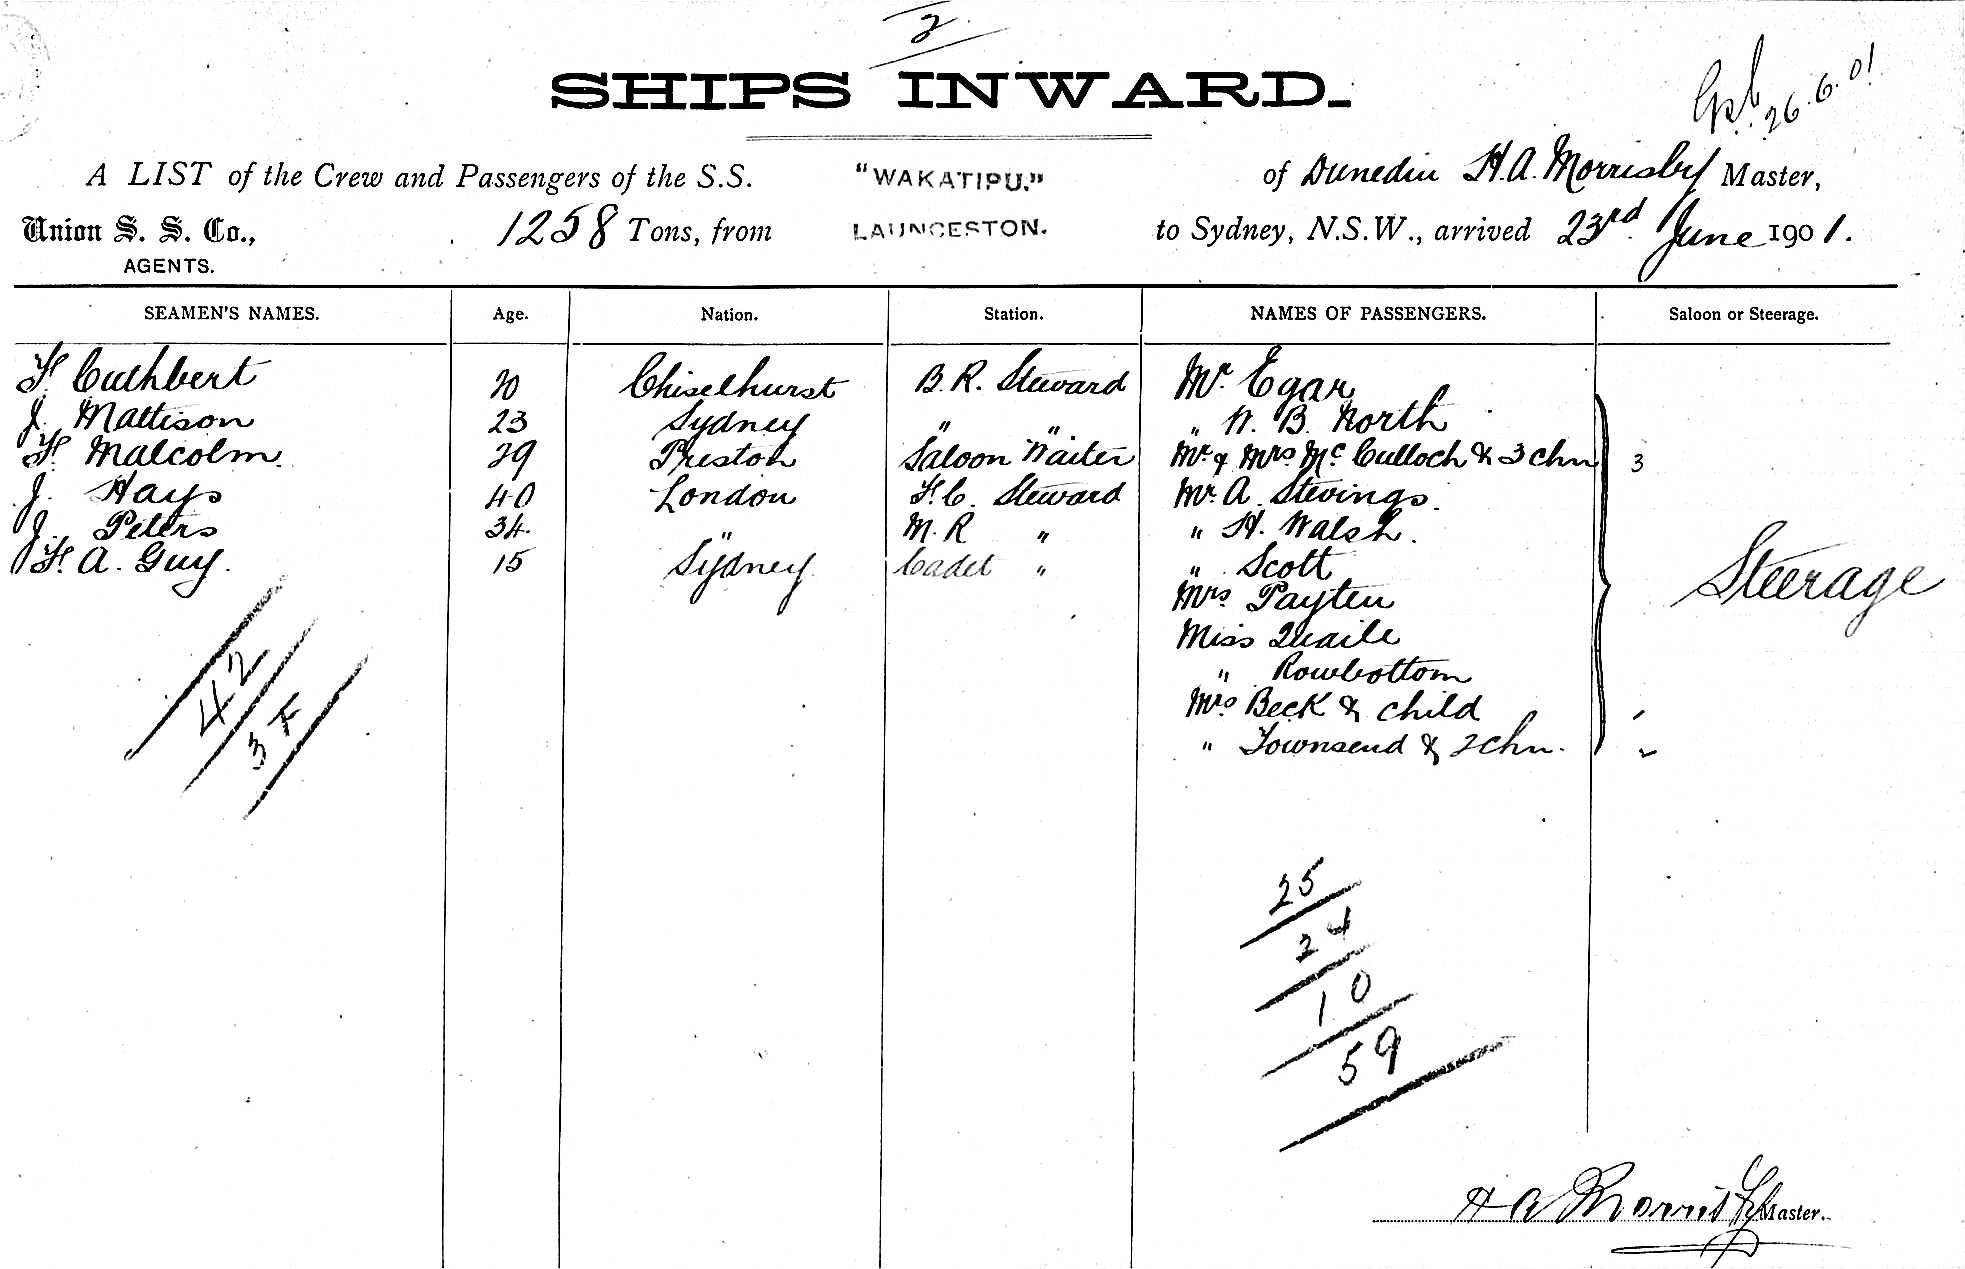 2
SHIPS INWARD.
26.6.01
A LIST of the Crew and Passengers of the S.S. "WAKATIPU." of Dunedin H.A. Morrisby Master,
Union S. S. Co., 1258 Tons, from LAUNCESTON. to Sydney, N.S.W., arrived 23rd June 1901.
AGENTS.
SEAMEN'S NAMES. Age. Nation. Station. NAMES OF PASSENGERS. Saloon or Steerage.
F. Cuthbert 20 Chiselhurst B.R. Steward Mr Egar
J. Mattison 23 Sydney " " " W. B. North
F. Malcolm. 29 Preston Saloon Waiter Mr & Mrs McCulloch & 3 chn 3
J. Hays 40 London F.C. Steward Mr A. Stevings.
J. Peters 34. " M.R " " H. Walsh.
F. A. Guy. 15 Sydney Cadet " " Scott
Steerage
Mrs Payten
Miss Quaile
" Rowbottom
Mrs Beck & child
" Townsend & 2 chn.
42
3 F
25
24
10
59
H A Morrisby Master.